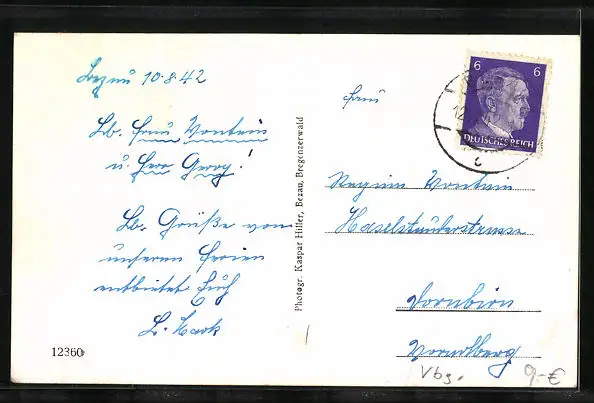 Bezau 10.8.42
Lb. Frau Wontein
u. Herr Georg!
Lb. Grüße von
unseren Ferien
entbietet Euch
L. Hark
12360
Photogr. Kaspar Hiller, Bezau, Bregenzerwald
6 6
DEUTSCHES REICH
12
c
Frau
Haselstauderstrasse
Dornbirn
Vorarlberg
Vbg.
9,-€